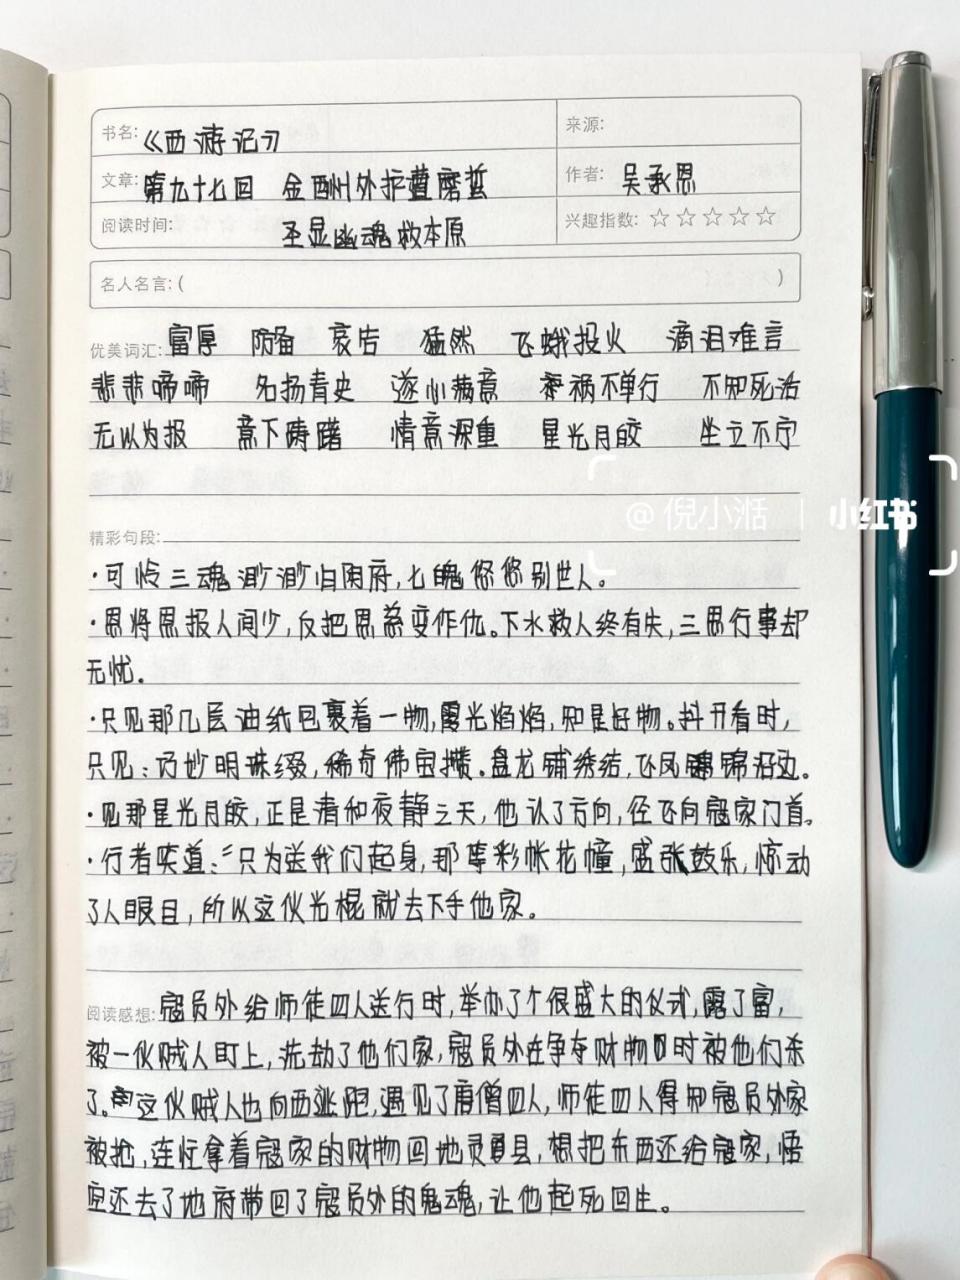 书名:《西游记》
来源:
文章:第九十七回 金酬外护遭魔蜇
作者: 吴承恩
阅读时间: 圣显幽魂救本原
兴趣指数:☆☆☆☆☆
名人名言:( )
优美词汇: 富厚 防备 哀告 猛然 飞蛾投火 滴泪难言
悲悲啼啼 名扬青史 遂心满意 祸不单行 不知死活
无以为报 意下踌躇 情意深重 星光月皎 坐立不宁
@倪小湉 | 小红书
精彩句段:
·可怜三魂渺渺归阴府,七魄悠悠别世人。
·恩将恩报人间少,反把恩慈变作仇。下水救人终有失,三思行事却
无忧。
·只见那几层油纸包裹着一物,霞光焰焰,知是好物。抖开看时,
只见:巧妙明珠缀,稀奇佛宝攒。盘龙铺绣结,飞凤锦沿边。
·见那星光月皎,正是清和夜静之天,他认了方向,径飞向寇家门首。
·行者笑道:“只为送我们起身,那等彩帐花幢,盛张鼓乐,惊动
了人眼目,所以这伙光棍就去下手他家。
阅读感想:寇员外给师徒四人送行时,举办了个很盛大的仪式,露了富,
被一伙贼人盯上,洗劫了他们家,寇员外在争夺财物时被他们杀
了。这伙贼人也向西逃跑,遇见了唐僧四人,师徒四人得知寇员外家
被抢,连忙拿着寇家的财物回地灵县,想把东西还给寇家,悟
空还去了地府带回了寇员外的鬼魂,让他起死回生。